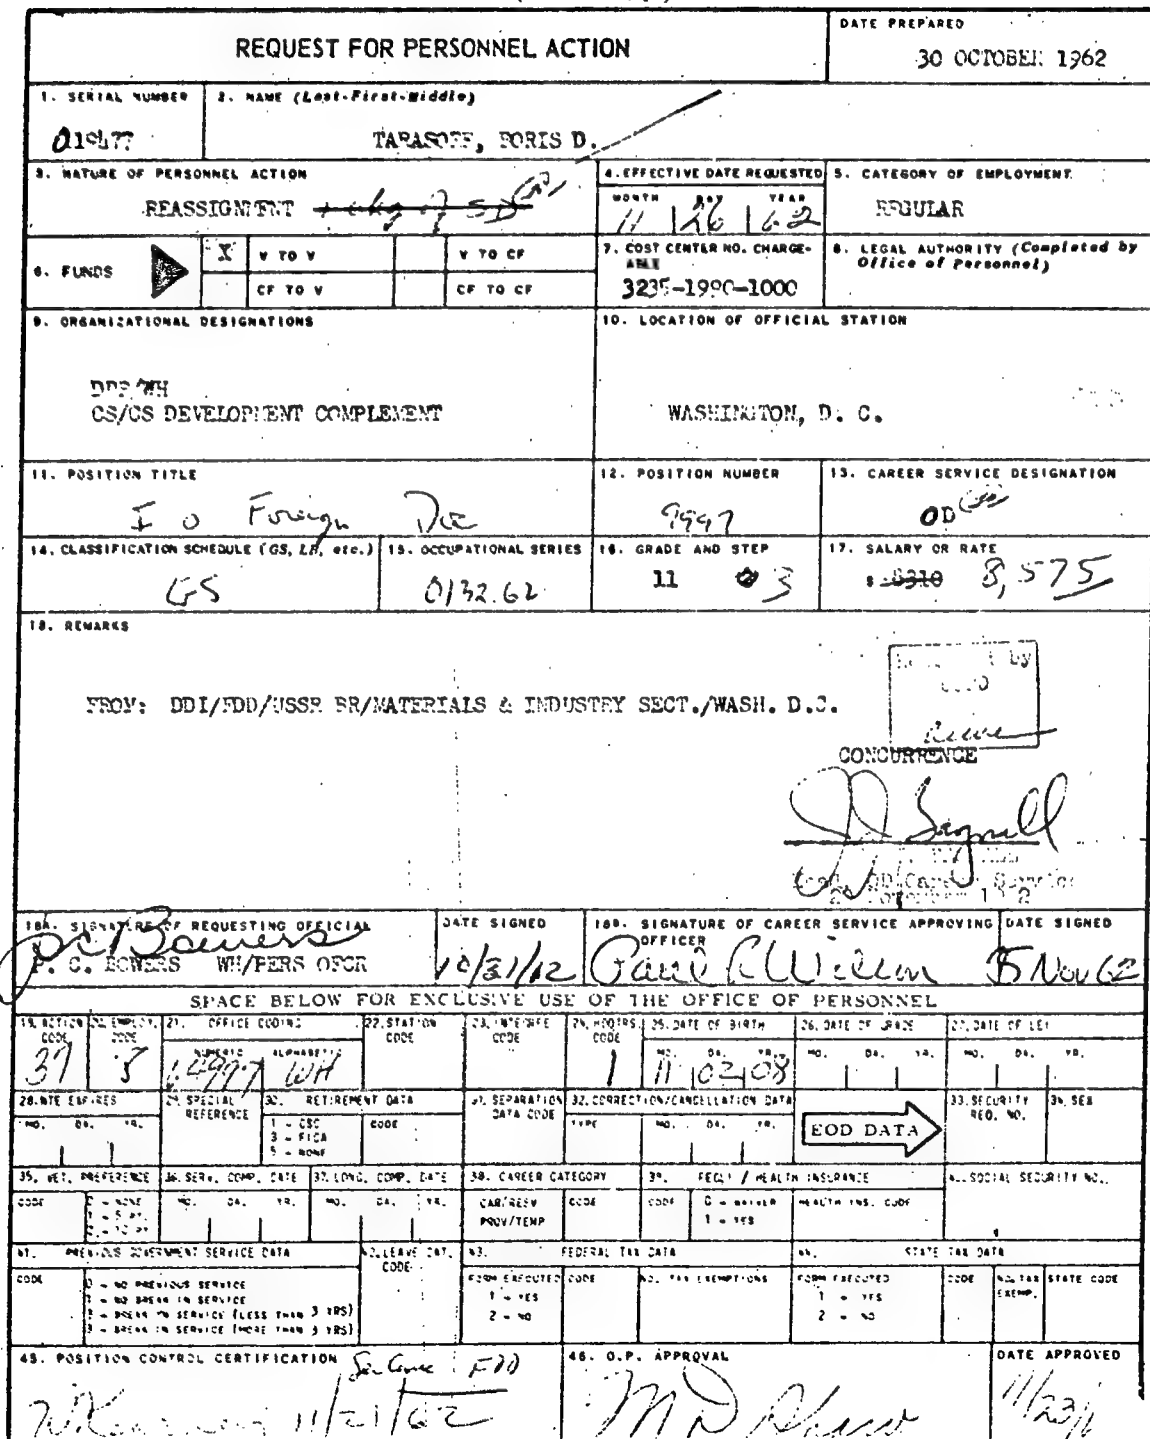 REQUEST FOR PERSONNEL ACTION
DATE PREPARED
30 OCTOBER 1962
1. SERIAL NUMBER
019477
2. NAME (Last-First-Middle)
TARASOFF, BORIS D.
3. NATURE OF PERSONNEL ACTION
REASSIGNMENT
4. EFFECTIVE DATE REQUESTED
MONTH DAY YEAR
11 26 62
5. CATEGORY OF EMPLOYMENT
REGULAR
6. FUNDS
X V TO V V TO CF
CF TO V CF TO CF
7. COST CENTER NO. CHARGE-
ABLE
3235-1990-1000
8. LEGAL AUTHORITY (Completed by
Office of Personnel)
9. ORGANIZATIONAL DESIGNATIONS
DDP/WH
CS/CS DEVELOPMENT COMPLEMENT
10. LOCATION OF OFFICIAL STATION
WASHINGTON, D. C.
11. POSITION TITLE
I O Foreign Doc
12. POSITION NUMBER
9997
13. CAREER SERVICE DESIGNATION
OD
14. CLASSIFICATION SCHEDULE (GS, LB, etc.)
GS
15. OCCUPATIONAL SERIES
0132.62
16. GRADE AND STEP
11 3
17. SALARY OR RATE
$ 8310 8,575
18. REMARKS
FROM: DDI/FDD/USSR BR/MATERIALS & INDUSTRY SECT./WASH. D.C.
by
CONCURRENCE
18A. SIGNATURE OF REQUESTING OFFICIAL
P. C. BOWERS WH/PERS OFCR
DATE SIGNED
10/31/62
18B. SIGNATURE OF CAREER SERVICE APPROVING
OFFICER
Paul C Wilson
DATE SIGNED
5 Nov 62
SPACE BELOW FOR EXCLUSIVE USE OF THE OFFICE OF PERSONNEL
19. ACTION
CODE
37
20. EMPLOY.
CODE
21. OFFICE CODING
NUMERIC ALPHABETIC
WH
22. STATION
CODE
23. INTEGREE
CODE
24. HDQTRS.
CODE
1
25. DATE OF BIRTH
MO. DA. YR.
11 02 08
26. DATE OF GRADE
MO. DA. YR.
27. DATE OF LEI
MO. DA. YR.
28. NTE EXPIRES
MO. DA. YR.
29. SPECIAL
REFERENCE
30. RETIREMENT DATA
1 - CSC
3 - FICA
5 - NONE
CODE
31. SEPARATION
DATA CODE
32. CORRECTION/CANCELLATION DATA
TYPE MO. DA. YR.
EOD DATA
33. SECURITY
REQ. NO.
34. SEX
35. VET. PREFERENCE
CODE
0 - NONE
1 - 5 PT.
2 - 10 PT.
36. SERV. COMP. DATE
MO. DA. YR.
37. LONG. COMP. DATE
MO. DA. YR.
38. CAREER CATEGORY
CAR/RESV
PROV/TEMP
CODE
39. FEGLI / HEALTH INSURANCE
CODE
0 - WAIVER
1 - YES
HEALTH INS. CODE
40. SOCIAL SECURITY NO.
41. PREVIOUS GOVERNMENT SERVICE DATA
CODE
0 - NO PREVIOUS SERVICE
1 - NO BREAK IN SERVICE
2 - BREAK IN SERVICE (LESS THAN 3 YRS)
3 - BREAK IN SERVICE (MORE THAN 3 YRS)
42. LEAVE CAT.
CODE
43. FEDERAL TAX DATA
FORM EXECUTED
1 - YES
2 - NO
CODE
NO. TAX EXEMPTIONS
44. STATE TAX DATA
FORM EXECUTED
1 - YES
2 - NO
CODE
NO. TAX
EXEMP.
STATE CODE
45. POSITION CONTROL CERTIFICATION
FDD
11/21/62
46. O.P. APPROVAL
DATE APPROVED